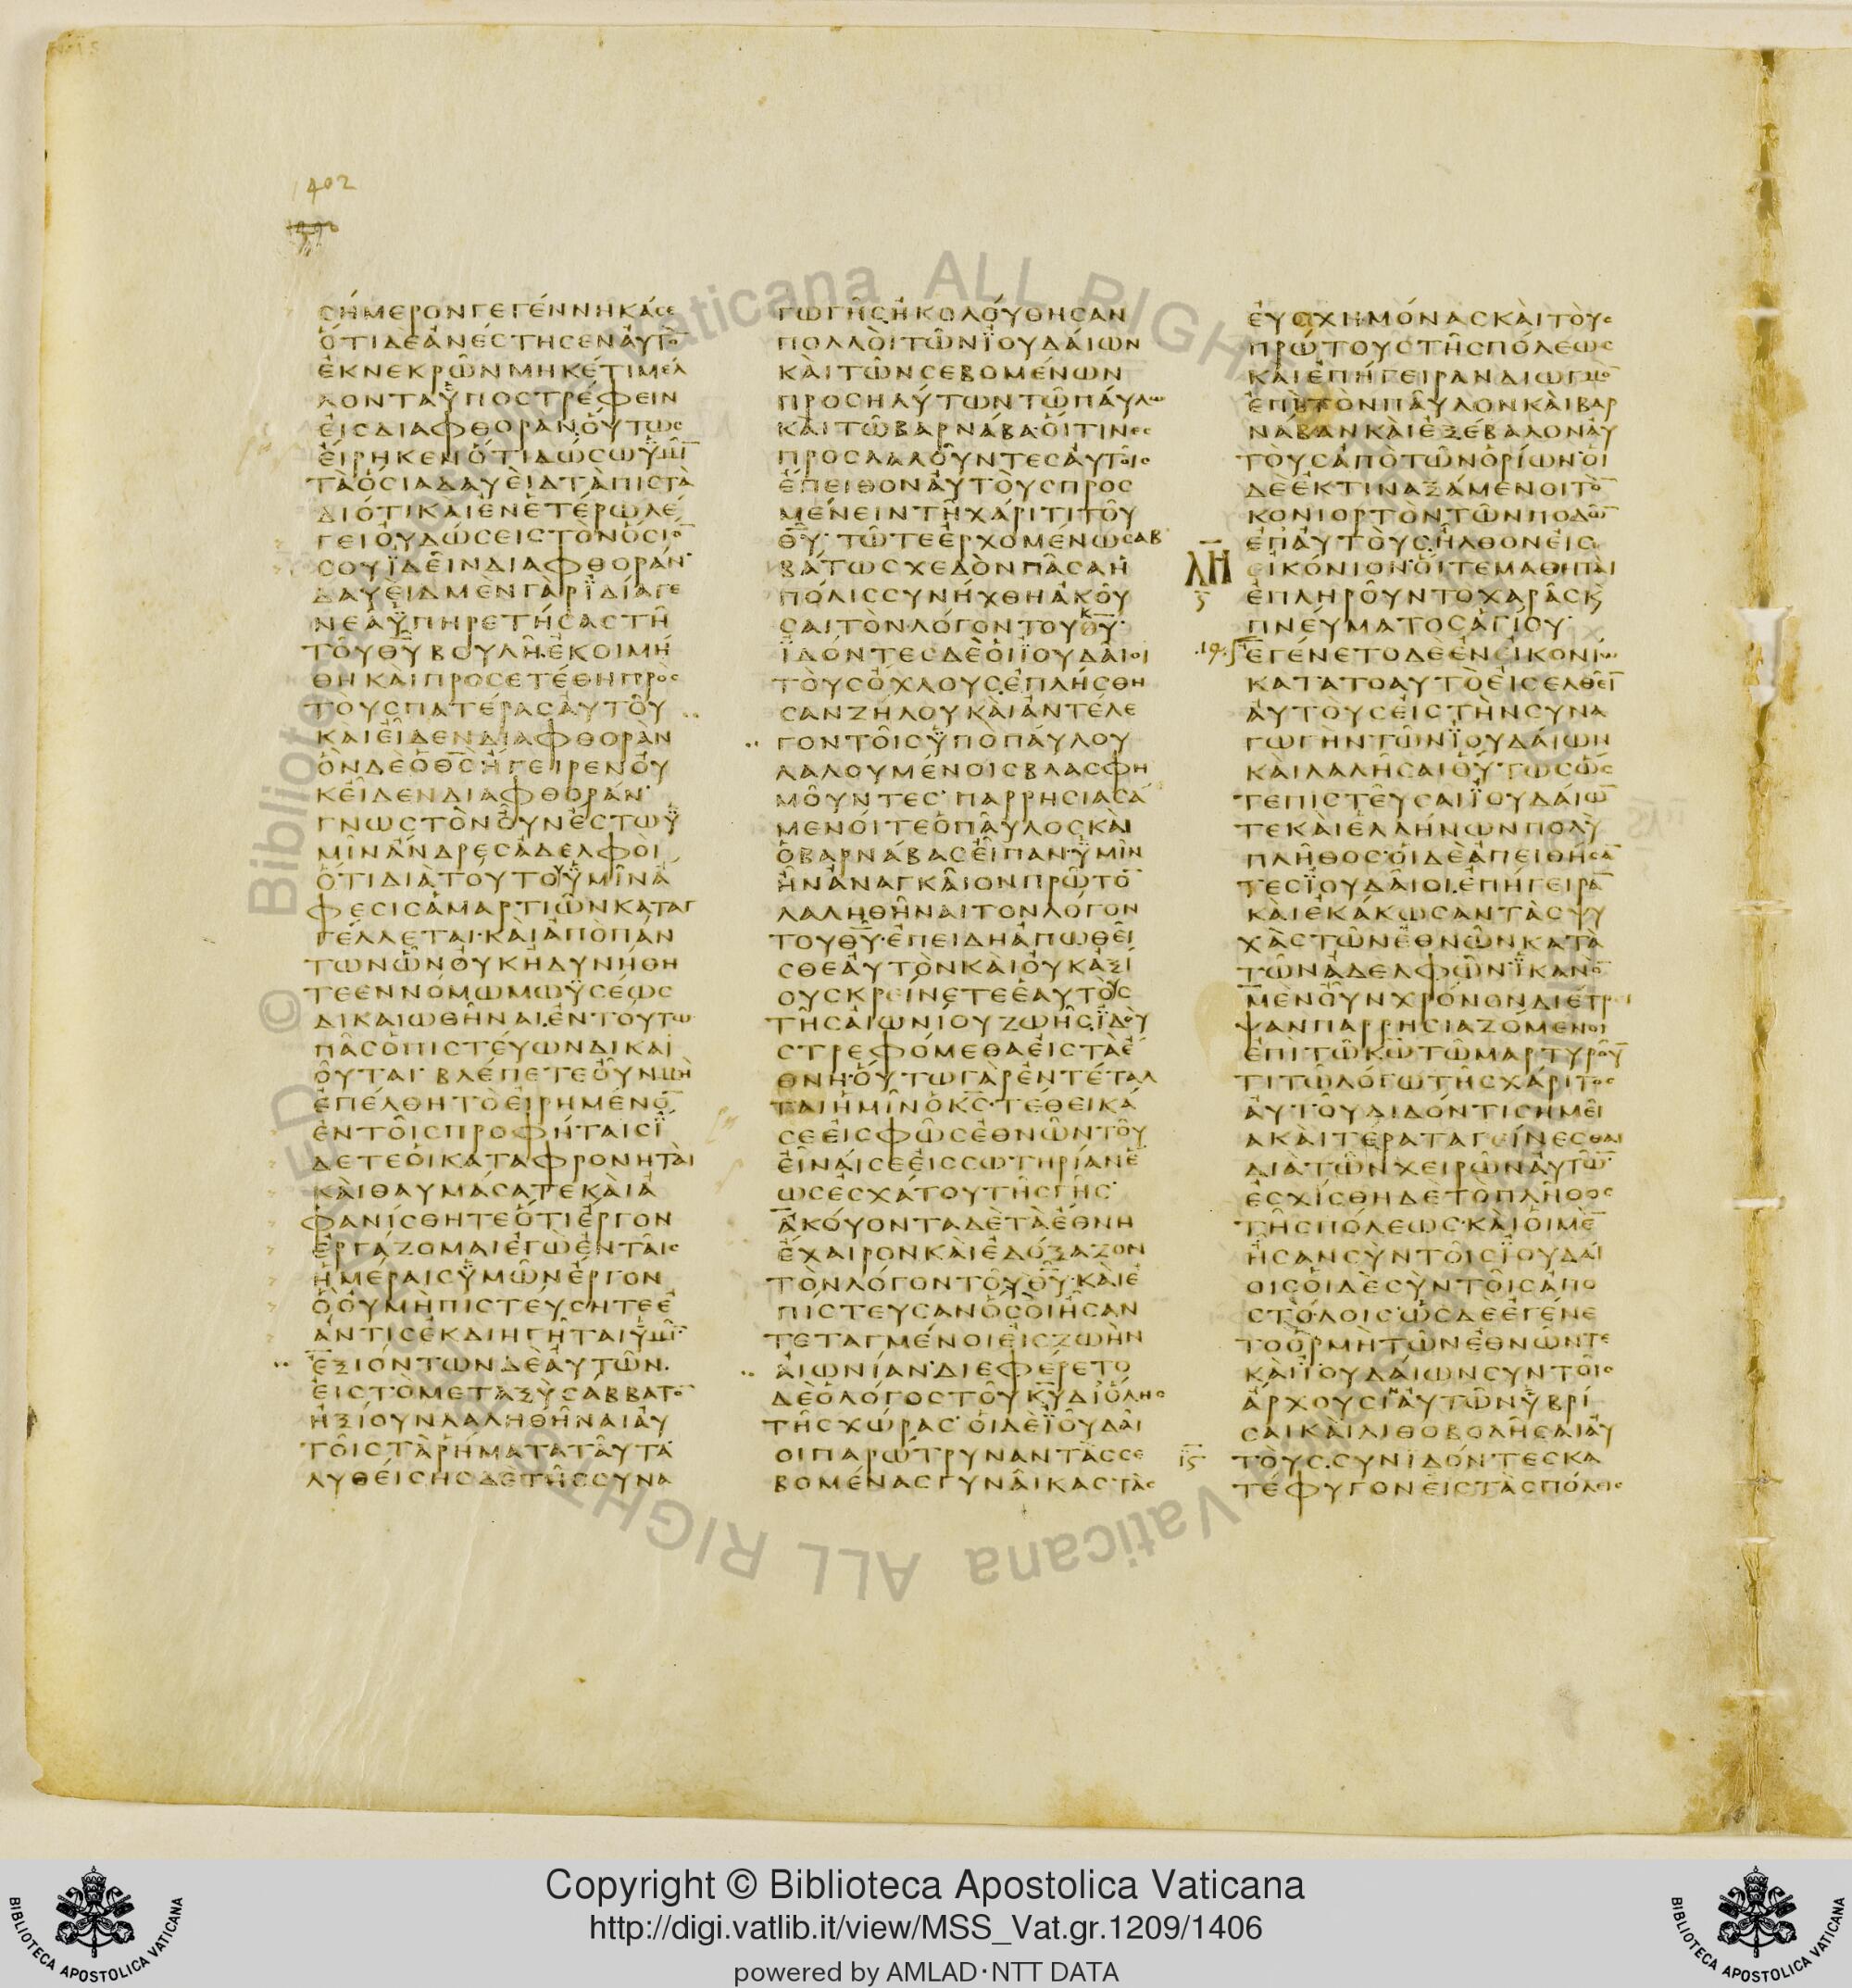 1402
ϹΗΜΕΡΟΝΓΕΓΕΝΝΗΚΑϹΕ
ΟΤΙΔΕΑΝΕϹΤΗϹΕΝΑΥΤΟ̅
ΕΚΝΕΚΡΩΝΜΗΚΕΤΙΜΕΛ
ΛΟΝΤΑΥΠΟϹΤΡΕΦΕΙΝ
ΕΙϹΔΙΑΦΘΟΡΑΝΟΥΤΩϹ
ΕΙΡΗΚΕΝΟΤΙΔΩϹΩΥΜΙ̅
ΤΑΟϹΙΑΔΑΥΕΙΔΤΑΠΙϹΤΑ
ΔΙΟΤΙΚΑΙΕΝΕΤΕΡΩΛΕ
ΓΕΙΟΥΔΩϹΕΙϹΤΟΝΟϹΙΟ̅
ϹΟΥΪΔΕΙΝΔΙΑΦΘΟΡΑΝ
ΔΑΥΕΙΔΜΕΝΓΑΡΪΔΙΑΓΕ
ΝΕΑΥΠΗΡΕΤΗϹΑϹΤΗ
ΤΟΥΘ̅Υ̅ΒΟΥΛΗΕΚΟΙΜΗ
ΘΗΚΑΙΠΡΟϹΕΤΕΘΗΠΡΟϹ
ΤΟΥϹΠΑΤΕΡΑϹΑΥΤΟΥ
ΚΑΙΕΙΔΕΝΔΙΑΦΘΟΡΑΝ
ΟΝΔΕΟΘ̅Ϲ̅ΗΓΕΙΡΕΝΟΥ
ΚΕΙΔΕΝΔΙΑΦΘΟΡΑΝ
ΓΝΩϹΤΟΝΟΥΝΕϹΤΩΫ
ΜΙΝΑΝΔΡΕϹΑΔΕΛΦΟΙ
ΟΤΙΔΙΑΤΟΥΤΟΥΜΙΝΑ
ΦΕϹΙϹΑΜΑΡΤΙΩΝΚΑΤΑΓ
ΓΕΛΛΕΤΑΙ·ΚΑΙΑΠΟΠΑΝ
ΤΩΝΩΝΟΥΚΗΔΥΝΗΘΗ
ΤΕΕΝΝΟΜΩΜΩΫϹΕΩϹ
ΔΙΚΑΙΩΘΗΝΑΙ.ΕΝΤΟΥΤΩ
ΠΑϹΟΠΙϹΤΕΥΩΝΔΙΚΑΙ
ΟΥΤΑΙ·ΒΛΕΠΕΤΕΟΥΝΜΗ
ΕΠΕΛΘΗΤΟΕΙΡΗΜΕΝΟ̅
ΕΝΤΟΙϹΠΡΟΦΗΤΑΙϹΪ
ΔΕΤΕΟΙΚΑΤΑΦΡΟΝΗΤΑΙ
ΚΑΙΘΑΥΜΑϹΑΤΕΚΑΙΑ
ΦΑΝΙϹΘΗΤΕΟΤΙΕΡΓΟΝ
ΕΡΓΑΖΟΜΑΙΕΓΩΕΝΤΑΙϹ
ΗΜΕΡΑΙϹΫΜΩΝΕΡΓΟΝ
ΟΟΥΜΗΠΙϹΤΕΥϹΗΤΕΕ
ΑΝΤΙϹΕΚΔΙΗΓΗΤΑΙΥΜΙ̅
ΕΞΙΟΝΤΩΝΔΕΑΥΤΩΝ.
ΕΙϹΤΟΜΕΤΑΞΥϹΑΒΒΑΤΟ̅
ΗΞΙΟΥΝΛΑΛΗΘΗΝΑΙΑΥ
ΤΟΙϹΤΑΡΗΜΑΤΑΤΑΥΤΑ
ΛΥΘΕΙϹΗϹΔΕΤΗϹϹΥΝΑ
ΓΩΓΗϹΗΚΟΛΟΥΘΗϹΑΝ
ΠΟΛΛΟΙΤΩΝΪΟΥΔΑΙΩΝ
ΚΑΙΤΩΝϹΕΒΟΜΕΝΩΝ
ΠΡΟϹΗΛΥΤΩΝΤΩΠΑΥΛΩ
ΚΑΙΤΩΒΑΡΝΑΒΑ·ΟΙΤΙΝΕϹ
ΠΡΟϹΛΑΛΟΥΝΤΕϹΑΥΤΟΙϹ
ΕΠΕΙΘΟΝΑΥΤΟΥϹΠΡΟϹ
ΜΕΝΕΙΝΤΗΧΑΡΙΤΙΤΟΥ
Θ̅Υ̅·ΤΩΤΕΕΡΧΟΜΕΝΩϹΑΒ
ΒΑΤΩϹΧΕΔΟΝΠΑϹΑΗ
ΠΟΛΙϹϹΥΝΗΧΘΗΑΚΟΥ
ϹΑΙΤΟΝΛΟΓΟΝΤΟΥΘ̅Υ̅·
ΪΔΟΝΤΕϹΔΕΟΙΪΟΥΔΑΙΟΙ
ΤΟΥϹΟΧΛΟΥϹΕΠΛΗϹΘΗ
ϹΑΝΖΗΛΟΥΚΑΙΑΝΤΕΛΕ
ΓΟΝΤΟΙϹΫΠΟΠΑΥΛΟΥ
ΛΑΛΟΥΜΕΝΟΙϹΒΛΑϹΦΗ
ΜΟΥΝΤΕϹ·ΠΑΡΡΗϹΙΑϹΑ
ΜΕΝΟΙΤΕΟΠΑΥΛΟϹΚΑΙ
ΟΒΑΡΝΑΒΑϹΕΙΠΑΝ·ΫΜΙΝ
ΗΝΑΝΑΓΚΑΙΟΝΠΡΩΤΟ̅
ΛΑΛΗΘΗΝΑΙΤΟΝΛΟΓΟΝ
ΤΟΥΘ̅Υ̅·ΕΠΕΙΔΗΑΠΩΘΕΙ
ϹΘΕΑΥΤΟΝΚΑΙΟΥΚΑΞΙ
ΟΥϹΚΡΕΙΝΕΤΕΕΑΥΤΟΥϹ
ΤΗϹΑΙΩΝΙΟΥΖΩΗϹΪΔΟΥ
ϹΤΡΕΦΟΜΕΘΑΕΙϹΤΑΕ
ΘΝΗ·ΟΥΤΩΓΑΡΕΝΤΕΤΑΛ
ΤΑΙΗΜΙΝΟΚ̅Ϲ̅·ΤΕΘΕΙΚΑ
ϹΕΕΙϹΦΩϹΕΘΝΩΝΤΟΥ
ΕΙΝΑΙϹΕΕΙϹϹΩΤΗΡΙΑΝΕ
ΩϹΕϹΧΑΤΟΥΤΗϹΓΗϹ·
ΑΚΟΥΟΝΤΑΔΕΤΑΕΘΝΗ
ΕΧΑΙΡΟΝΚΑΙΕΔΟΞΑΖΟΝ
ΤΟΝΛΟΓΟΝΤΟΥΘ̅Υ̅·ΚΑΙΕ
ΠΙϹΤΕΥϹΑΝΟϹΟΙΗϹΑΝ
ΤΕΤΑΓΜΕΝΟΙΕΙϹΖΩΗΝ
ΑΙΩΝΙΑΝ·ΔΙΕΦΕΡΕΤΟ
ΔΕΟΛΟΓΟϹΤΟΥΚ̅Υ̅ΔΙΟΛΗϹ
ΤΗϹΧΩΡΑϹ·ΟΙΔΕΪΟΥΔΑΙ
ΟΙΠΑΡΩΤΡΥΝΑΝΤΑϹϹΕ
ΒΟΜΕΝΑϹΓΥΝΑΙΚΑϹΤΑϹ
ΕΥϹΧΗΜΟΝΑϹΚΑΙΤΟΥϹ
ΠΡΩΤΟΥϹΤΗϹΠΟΛΕΩϹ
ΚΑΙΕΠΗΓΕΙΡΑΝΔΙΩΓΜΟ̅
ΕΠΙΤΟΝΠΑΥΛΟΝΚΑΙΒΑΡ
ΝΑΒΑΝΚΑΙΕΞΕΒΑΛΟΝΑΥ
ΤΟΥϹΑΠΟΤΩΝΟΡΙΩΝ·ΟΙ
ΔΕΕΚΤΙΝΑΞΑΜΕΝΟΙΤΟ̅
ΚΟΝΙΟΡΤΟΝΤΩΝΠΟΔΩ̅
ΕΠΑΥΤΟΥϹΗΛΘΟΝΕΙϹ
ΛΗ ΕΙΚΟΝΙΟΝ·ΟΙΤΕΜΑΘΗΤΑΙ
ΕΠΛΗΡΟΥΝΤΟΧΑΡΑϹΚ
ΠΝΕΥΜΑΤΟϹΑΓΙΟΥ·
ΕΓΕΝΕΤΟΔΕΕΝΕΙΚΟΝΙΩ
ΚΑΤΑΤΟΑΥΤΟΕΙϹΕΛΘΕΙ̅
ΑΥΤΟΥϹΕΙϹΤΗΝϹΥΝΑ
ΓΩΓΗΝΤΩΝΪΟΥΔΑΙΩΝ
ΚΑΙΛΑΛΗϹΑΙΟΥΤΩϹΩϹ
ΤΕΠΙϹΤΕΥϹΑΙΪΟΥΔΑΙΩ̅
ΤΕΚΑΙΕΛΛΗΝΩΝΠΟΛΥ
ΠΛΗΘΟϹ·ΟΙΔΕΑΠΕΙΘΗϹΑ̅
ΤΕϹΪΟΥΔΑΙΟΙ.ΕΠΗΓΕΙΡΑ̅
ΚΑΙΕΚΑΚΩϹΑΝΤΑϹΨΥ
ΧΑϹΤΩΝΕΘΝΩΝΚΑΤΑ
ΤΩΝΑΔΕΛΦΩΝ·ΪΚΑΝΟ̅
ΜΕΝΟΥΝΧΡΟΝΟΝΔΙΕΤΡΙ
ΨΑΝΠΑΡΡΗϹΙΑΖΟΜΕΝΟΙ
ΕΠΙΤΩΚ̅Ω̅ΤΩΜΑΡΤΥΡΟΥ̅
ΤΙΤΩΛΟΓΩΤΗϹΧΑΡΙΤΟϹ
ΑΥΤΟΥΔΙΔΟΝΤΙϹΗΜΕΙ
ΑΚΑΙΤΕΡΑΤΑΓΕΙΝΕϹΘΑΙ
ΔΙΑΤΩΝΧΕΙΡΩΝΑΥΤΩ̅·
ΕϹΧΙϹΘΗΔΕΤΟΠΛΗΘΟϹ
ΤΗϹΠΟΛΕΩϹ·ΚΑΙΟΙΜΕ̅
ΗϹΑΝϹΥΝΤΟΙϹΪΟΥΔΑΙ
ΟΙϹΟΙΔΕϹΥΝΤΟΙϹΑΠΟ
ϹΤΟΛΟΙϹ·ΩϹΔΕΕΓΕΝΕ
ΤΟΟΡΜΗΤΩΝΕΘΝΩΝΤΕ
ΚΑΙΪΟΥΔΑΙΩΝϹΥΝΤΟΙϹ
ΑΡΧΟΥϹΙΝΑΥΤΩΝΥΒΡΙ
ϹΑΙΚΑΙΛΙΘΟΒΟΛΗϹΑΙΑΥ
ΤΟΥϹ.ϹΥΝΪΔΟΝΤΕϹΚΑ
ΤΕΦΥΓΟΝΕΙϹΤΑϹΠΟΛΕΙϹ
© Biblioteca Apostolica Vaticana ALL RIGHTS RESERVED
Copyright © Biblioteca Apostolica Vaticana
http://digi.vatlib.it/view/MSS_Vat.gr.1209/1406
powered by AMLAD·NTT DATA
BIBLIOTECA APOSTOLICA VATICANA
BIBLIOTECA APOSTOLICA VATICANA